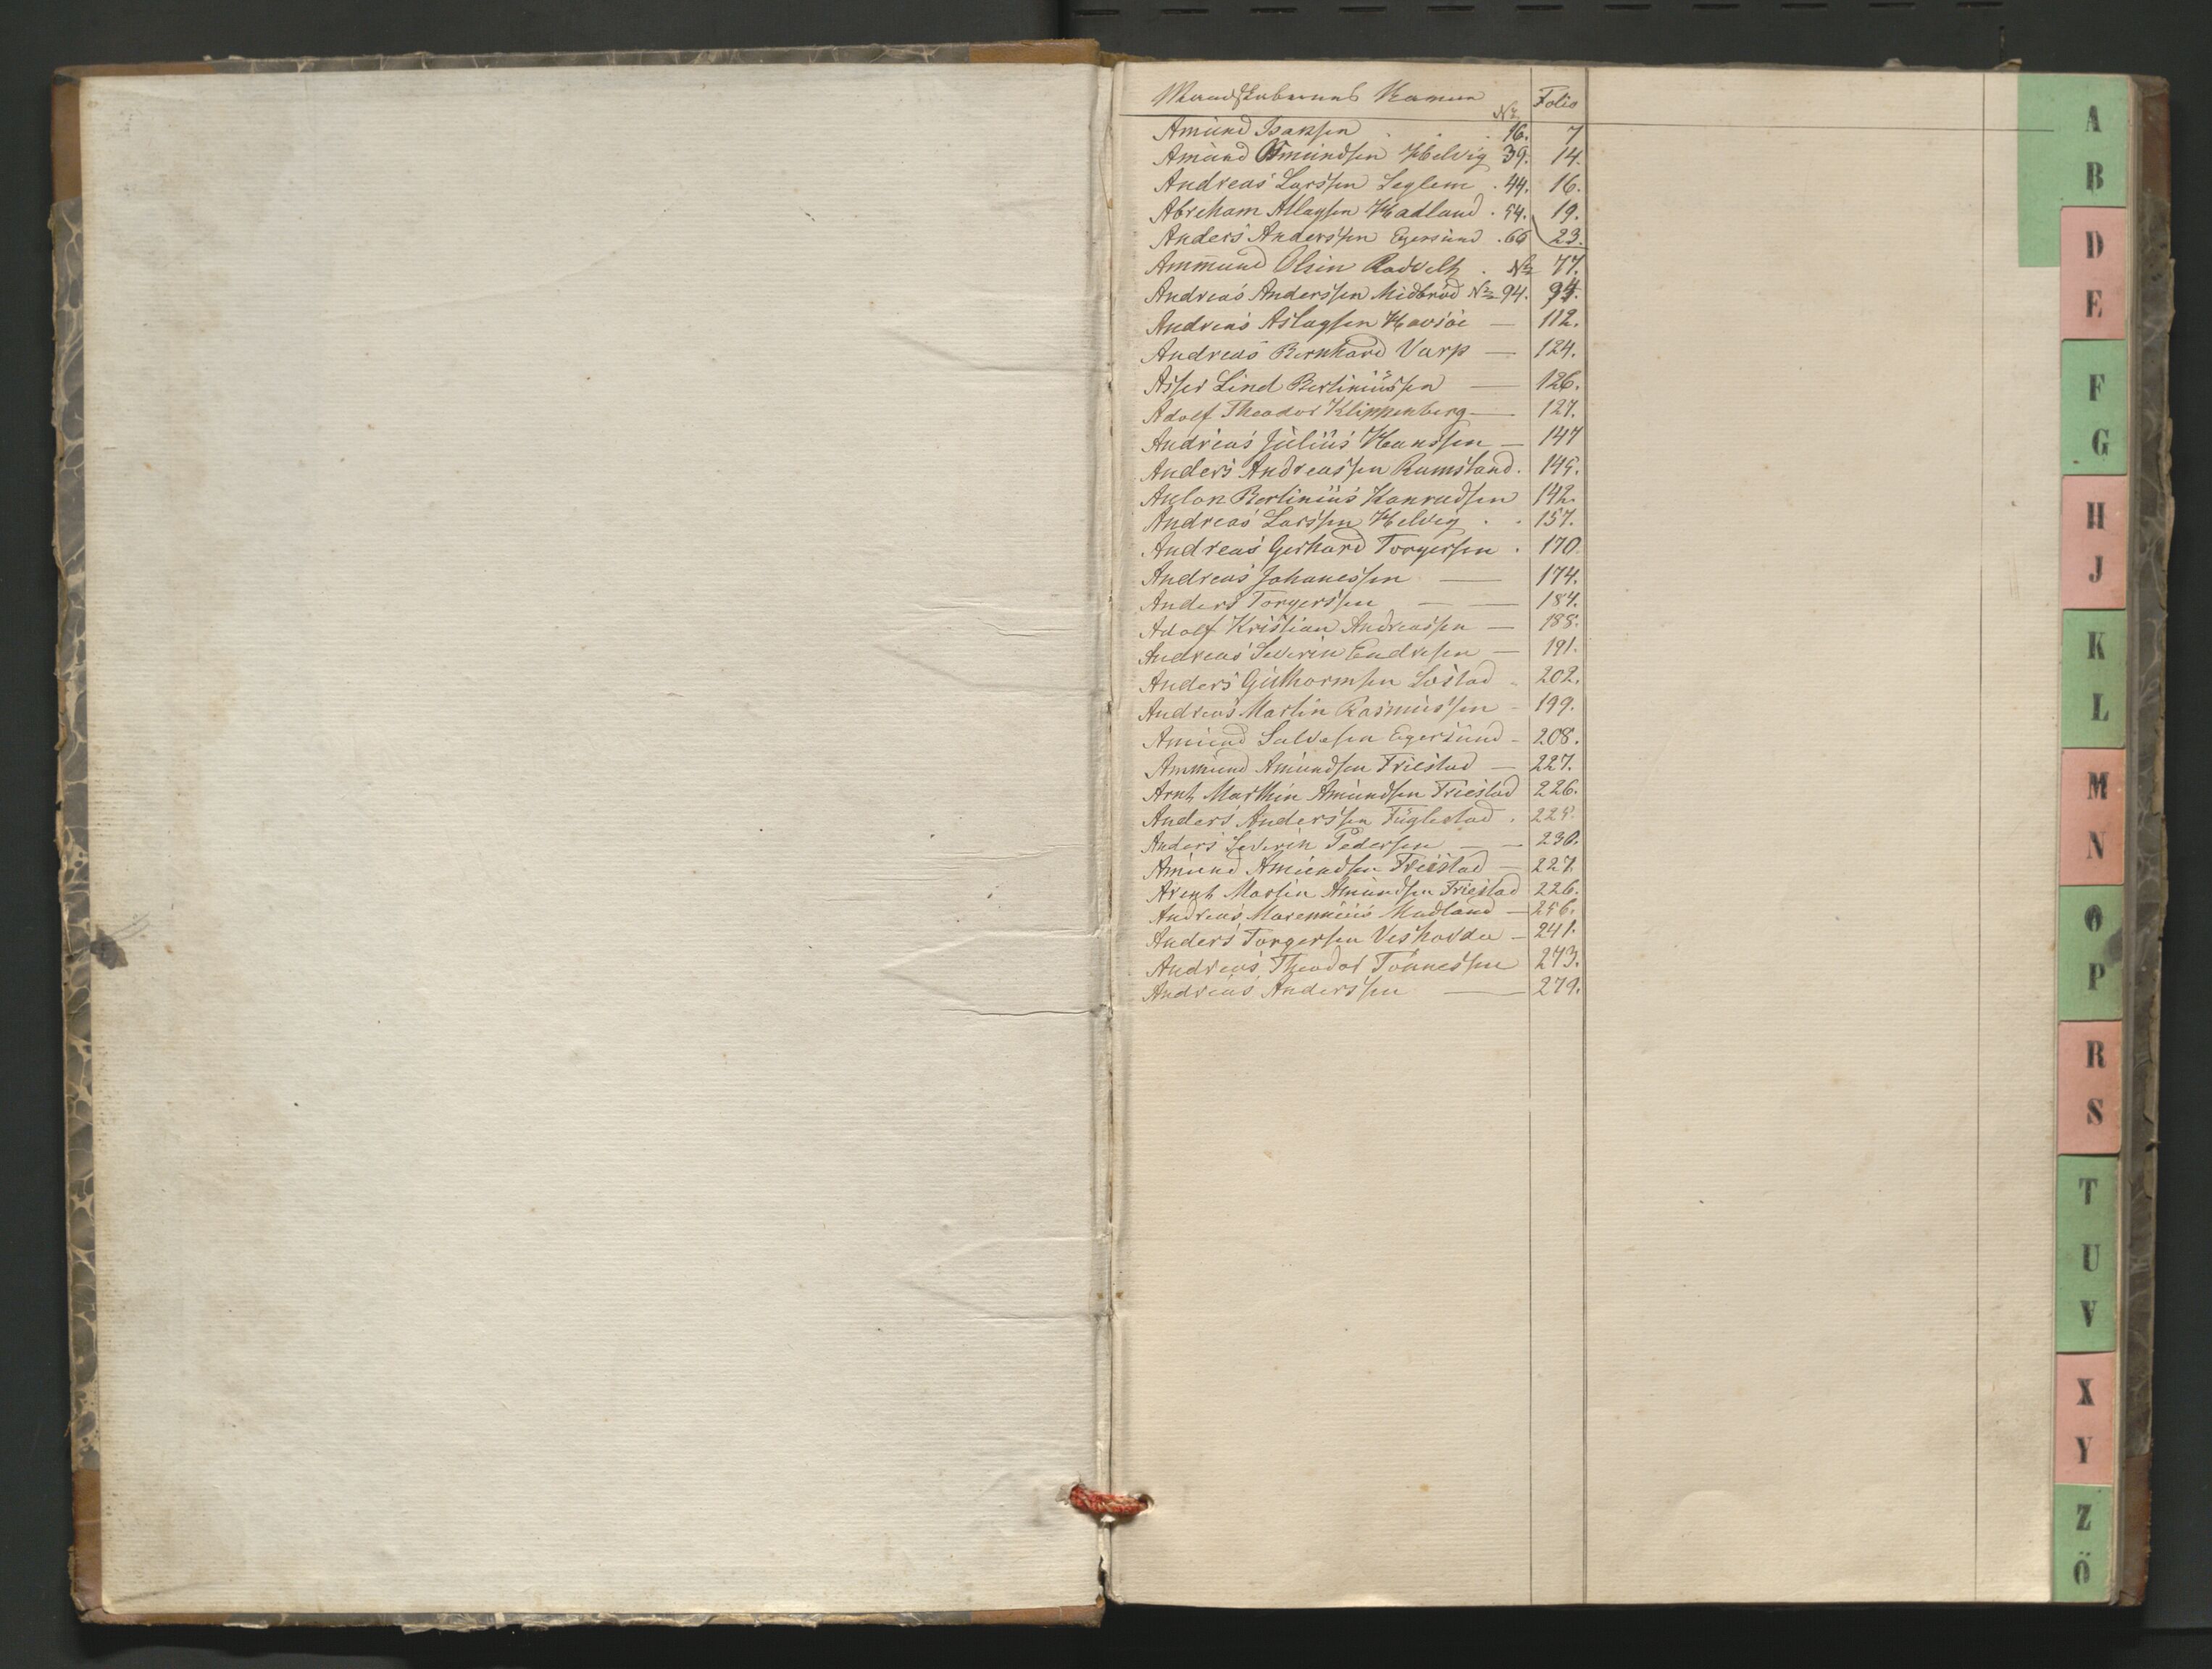 Mandskabernes Navne No Folio
Amund Isaksen . . . 16. 7
Amund Omundsen Helvig 39. 14.
Andreas Larssen Seglem . 44. 16.
Abreham Atlagsen Hadland . 54. 19.
Anders Anderssen Egersund . 66 23.
Ammund Olsen Rodvelt . No 77.
Andreas Anderssen Midbrød No 94. 94.
Andreas Aslagsen Havsøe — 112.
Andreas Bernhard Varp — 124.
Asser Lind Bertiniussen — 126.
Adolf Theodor Klippenberg — 127.
Andreas Julius Hanssen — 147
Anders Andreassen Rumsland . 145.
Anton Bertinius Konradsen 142.
Andreas Larssen Helvig . . 157.
Andreas Gerhard Torgersen . 170
Andreas Johanessen — 174.
Anders Torgerssen — — 184.
Adolf Kristian Andreassen — 188.
Andreas Severin Endresen — 191.
Anders Guthormsen 202.
Andreas Martin Rasmussen - 199.
Amund Salvesen Egersund - 208.
Ammund Amundsen Friestad — 227.
Arnt Marthin Amundsen Friestad 226.
Anders Anderssen Fuglestad . 225.
Anders Severin Pedersen — — 230.
Amund Amundsen Freistad — 227.
Arent Martin Amundsen Friestad 226.
Andreas Marennius Madland — 256.
Anders Torgersen Veshovda — 241.
Andreas Theodor Tönnessen 273.
Andreas Anderssen — 279.
A
B
D
E
F
G
H
J
K
L
M
N
O
P
R
S
T
U
V
X
Y
Z
Ö